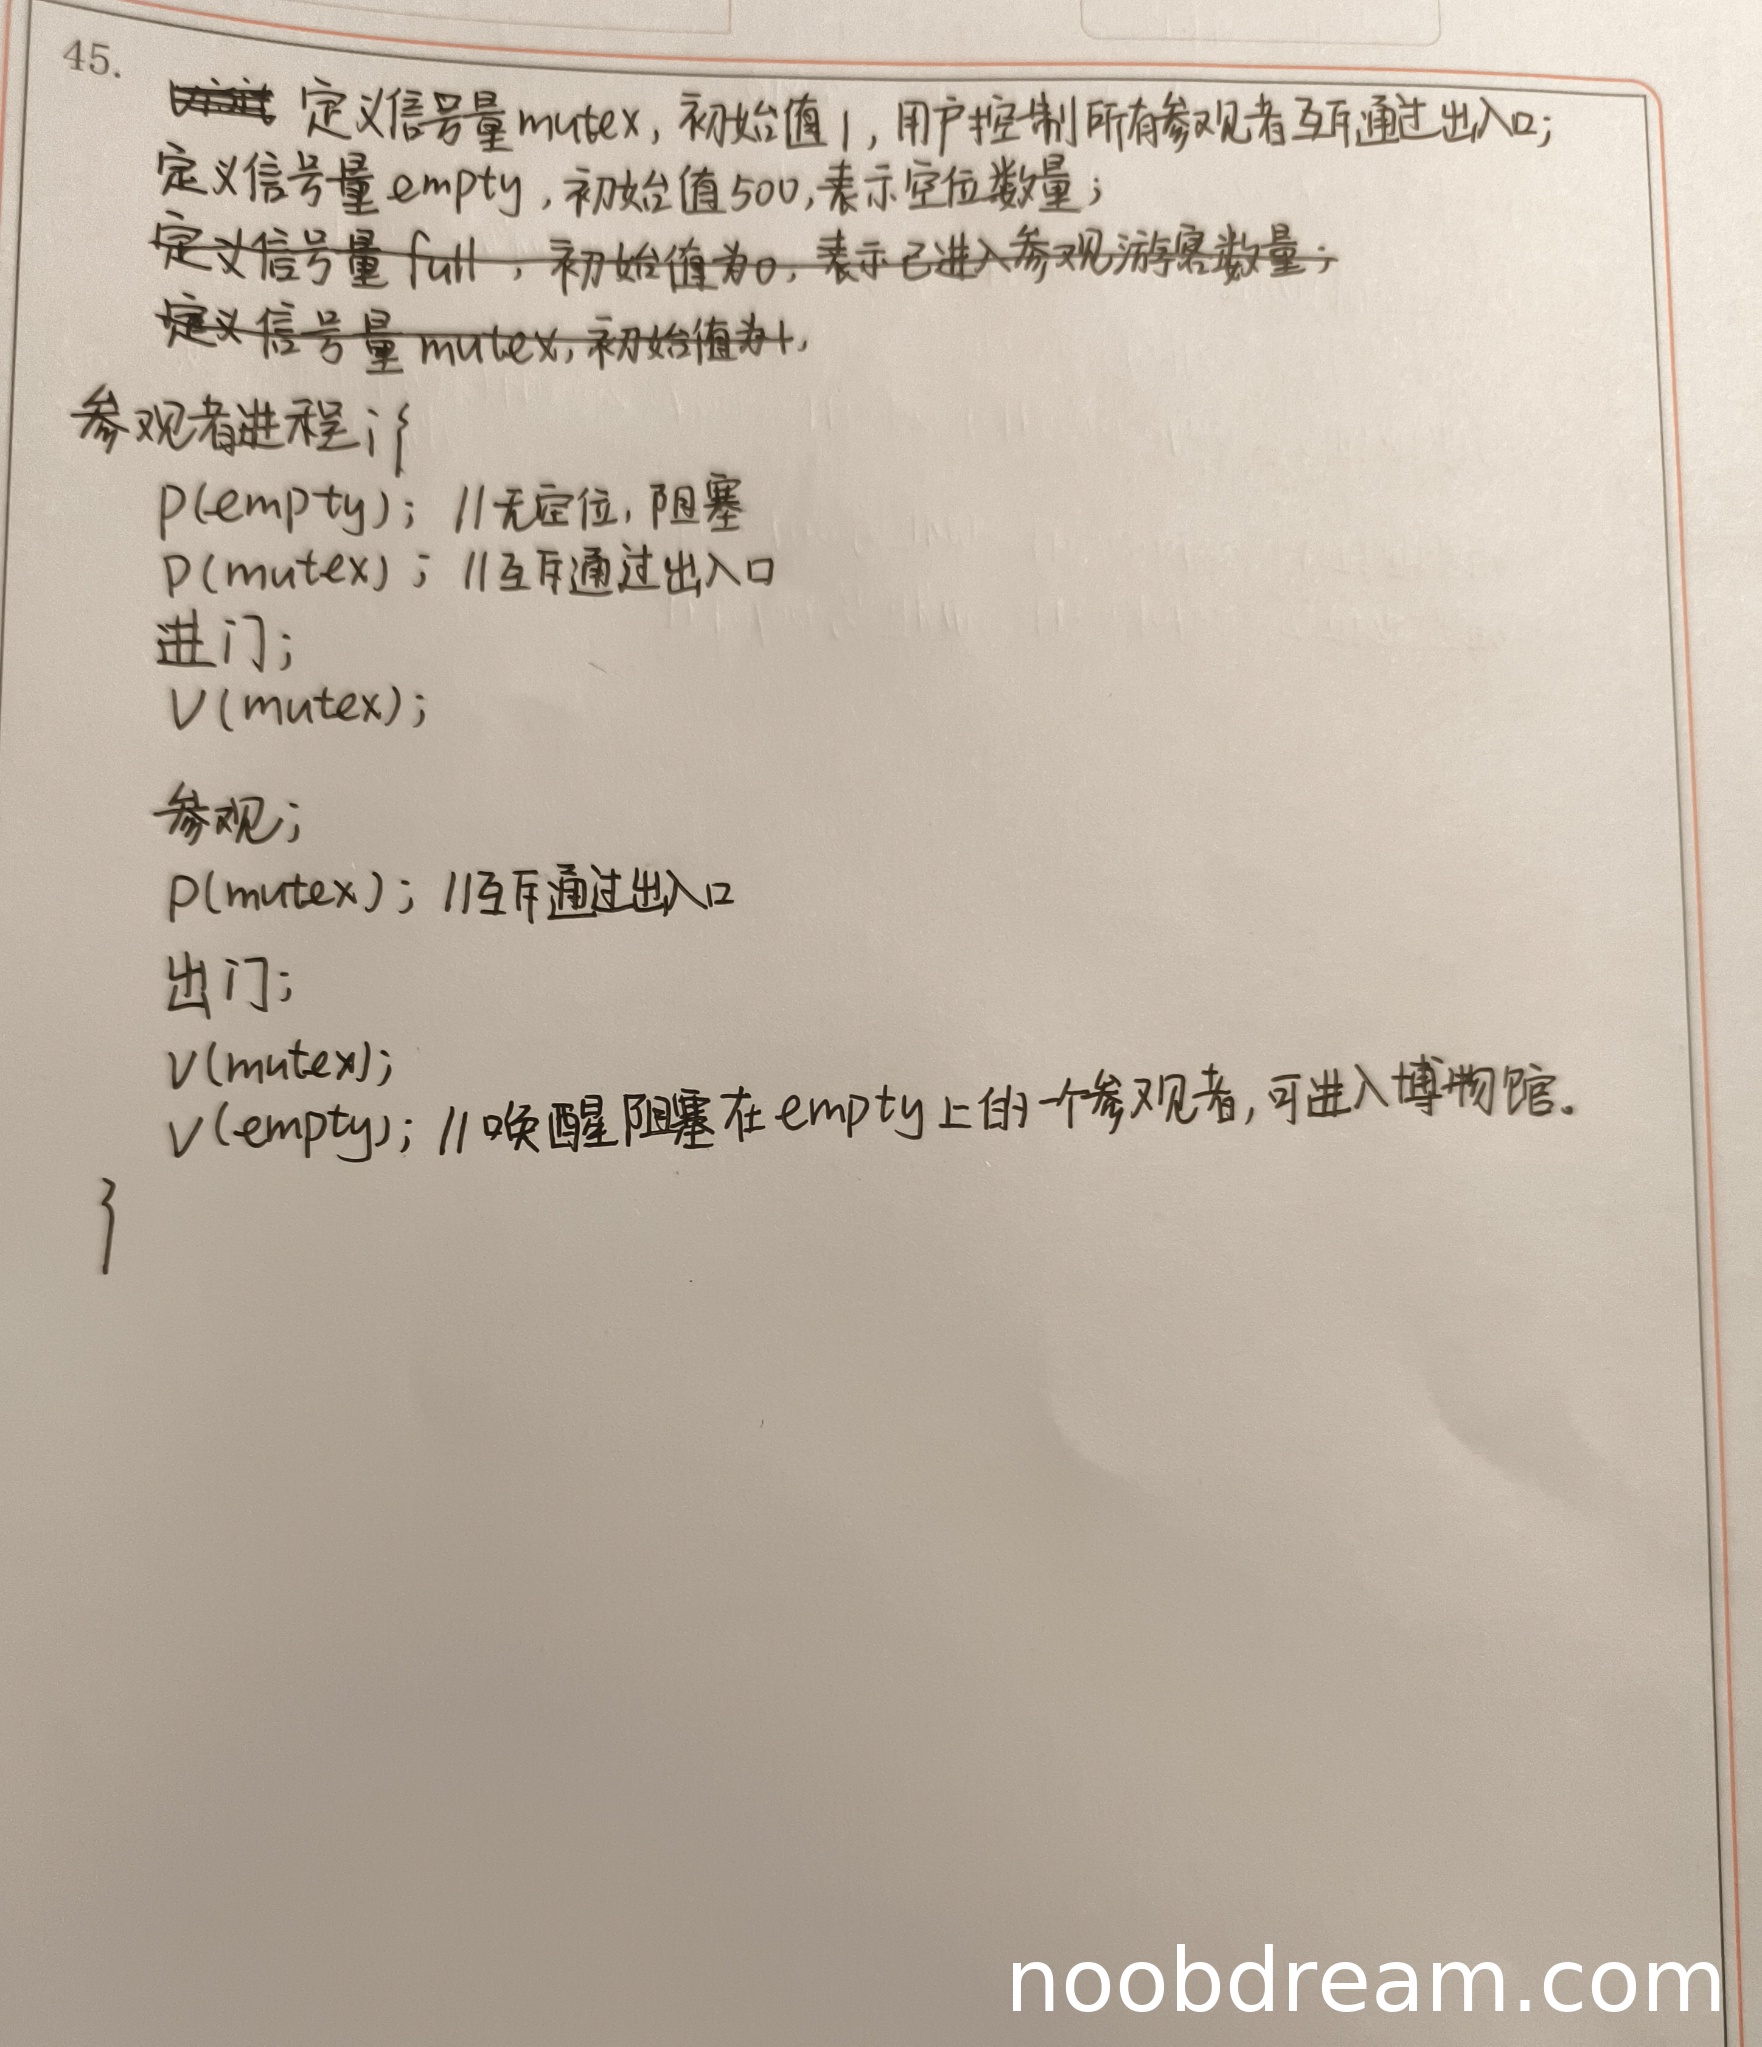 45.
定义信号量mutex, 初始值1, 用户控制所有参观者互斥通过出入口;
定义信号量empty, 初始值500, 表示空位数量;
定义信号量full, 初始值为0, 表示已进入参观游客数量;
定义信号量mutex, 初始值为1,
参观者进程i{
P(empty); //无定位, 阻塞
P(mutex); //互斥通过出入口
进门;
V(mutex);
参观;
P(mutex); //互斥通过出入口
出门;
V(mutex);
V(empty); //唤醒阻塞在empty上的一个参观者, 可进入博物馆。
}
noobdream.com